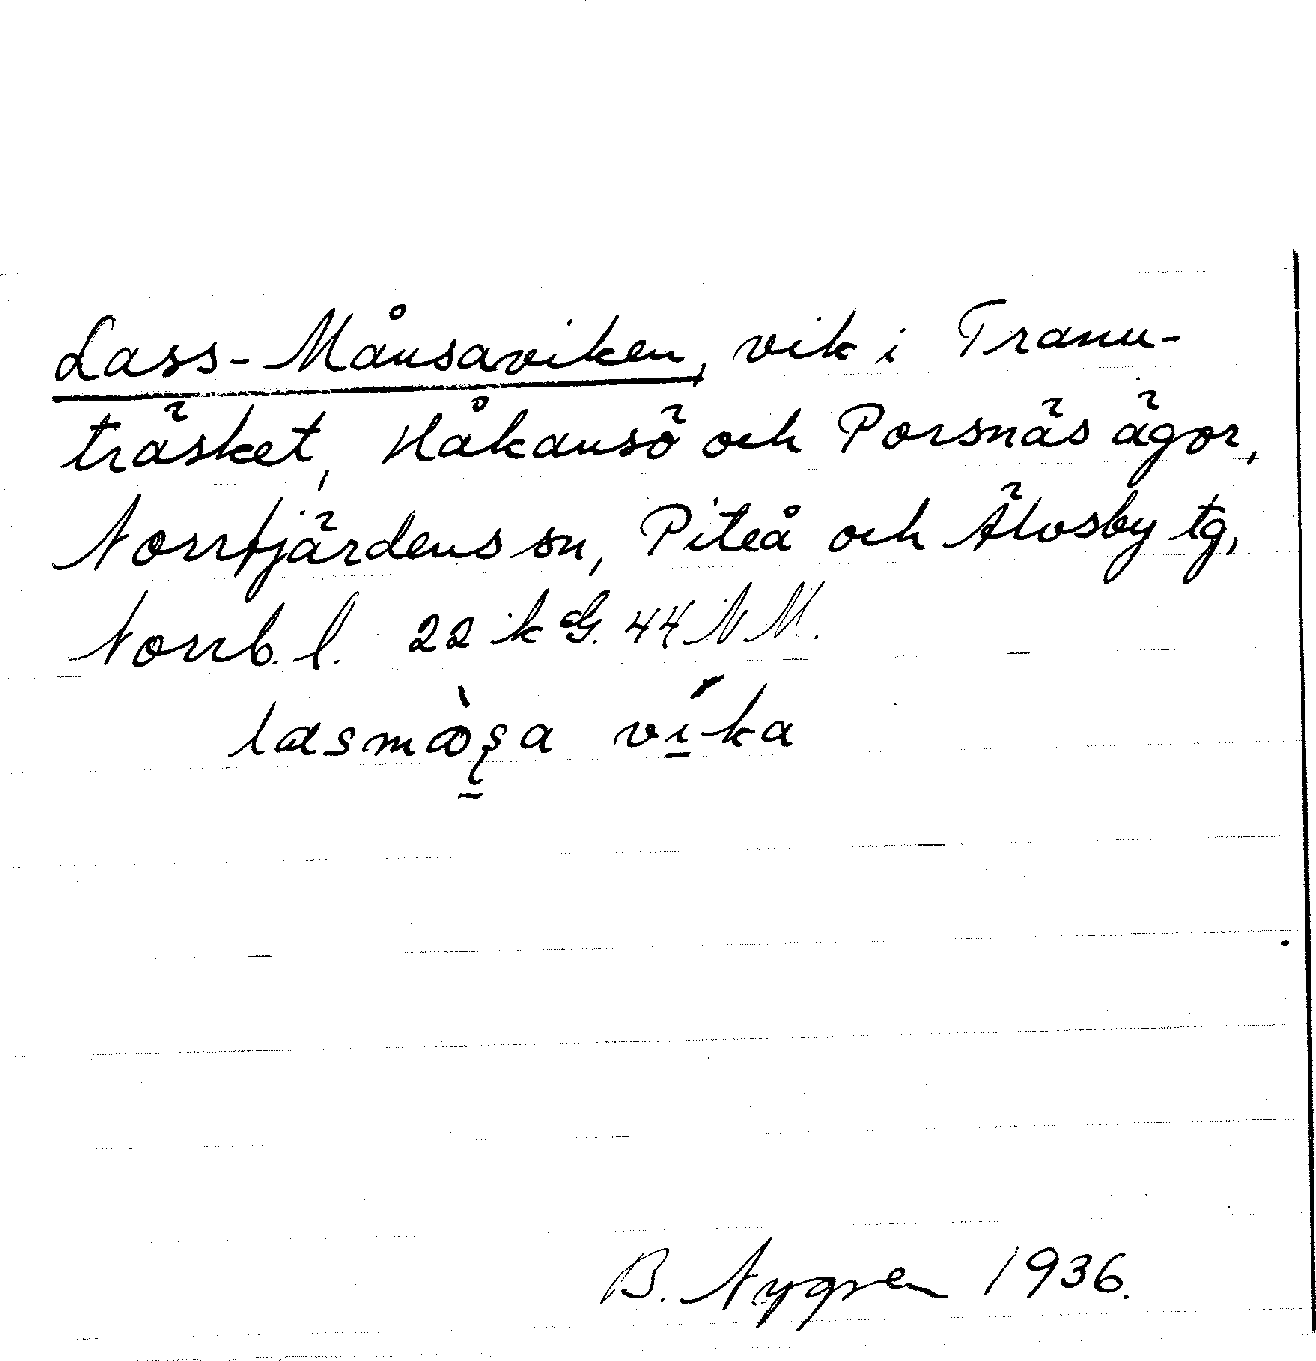 Lass-Månsaviken, vik i Tranu-
träsket, Håkansö och Porsnäs ägor,
Norrfjärdens sn, Piteå och Älvsby tg,
Norrb. l. 22 k G. 44 NM.
víka
B. Nygren 1936.